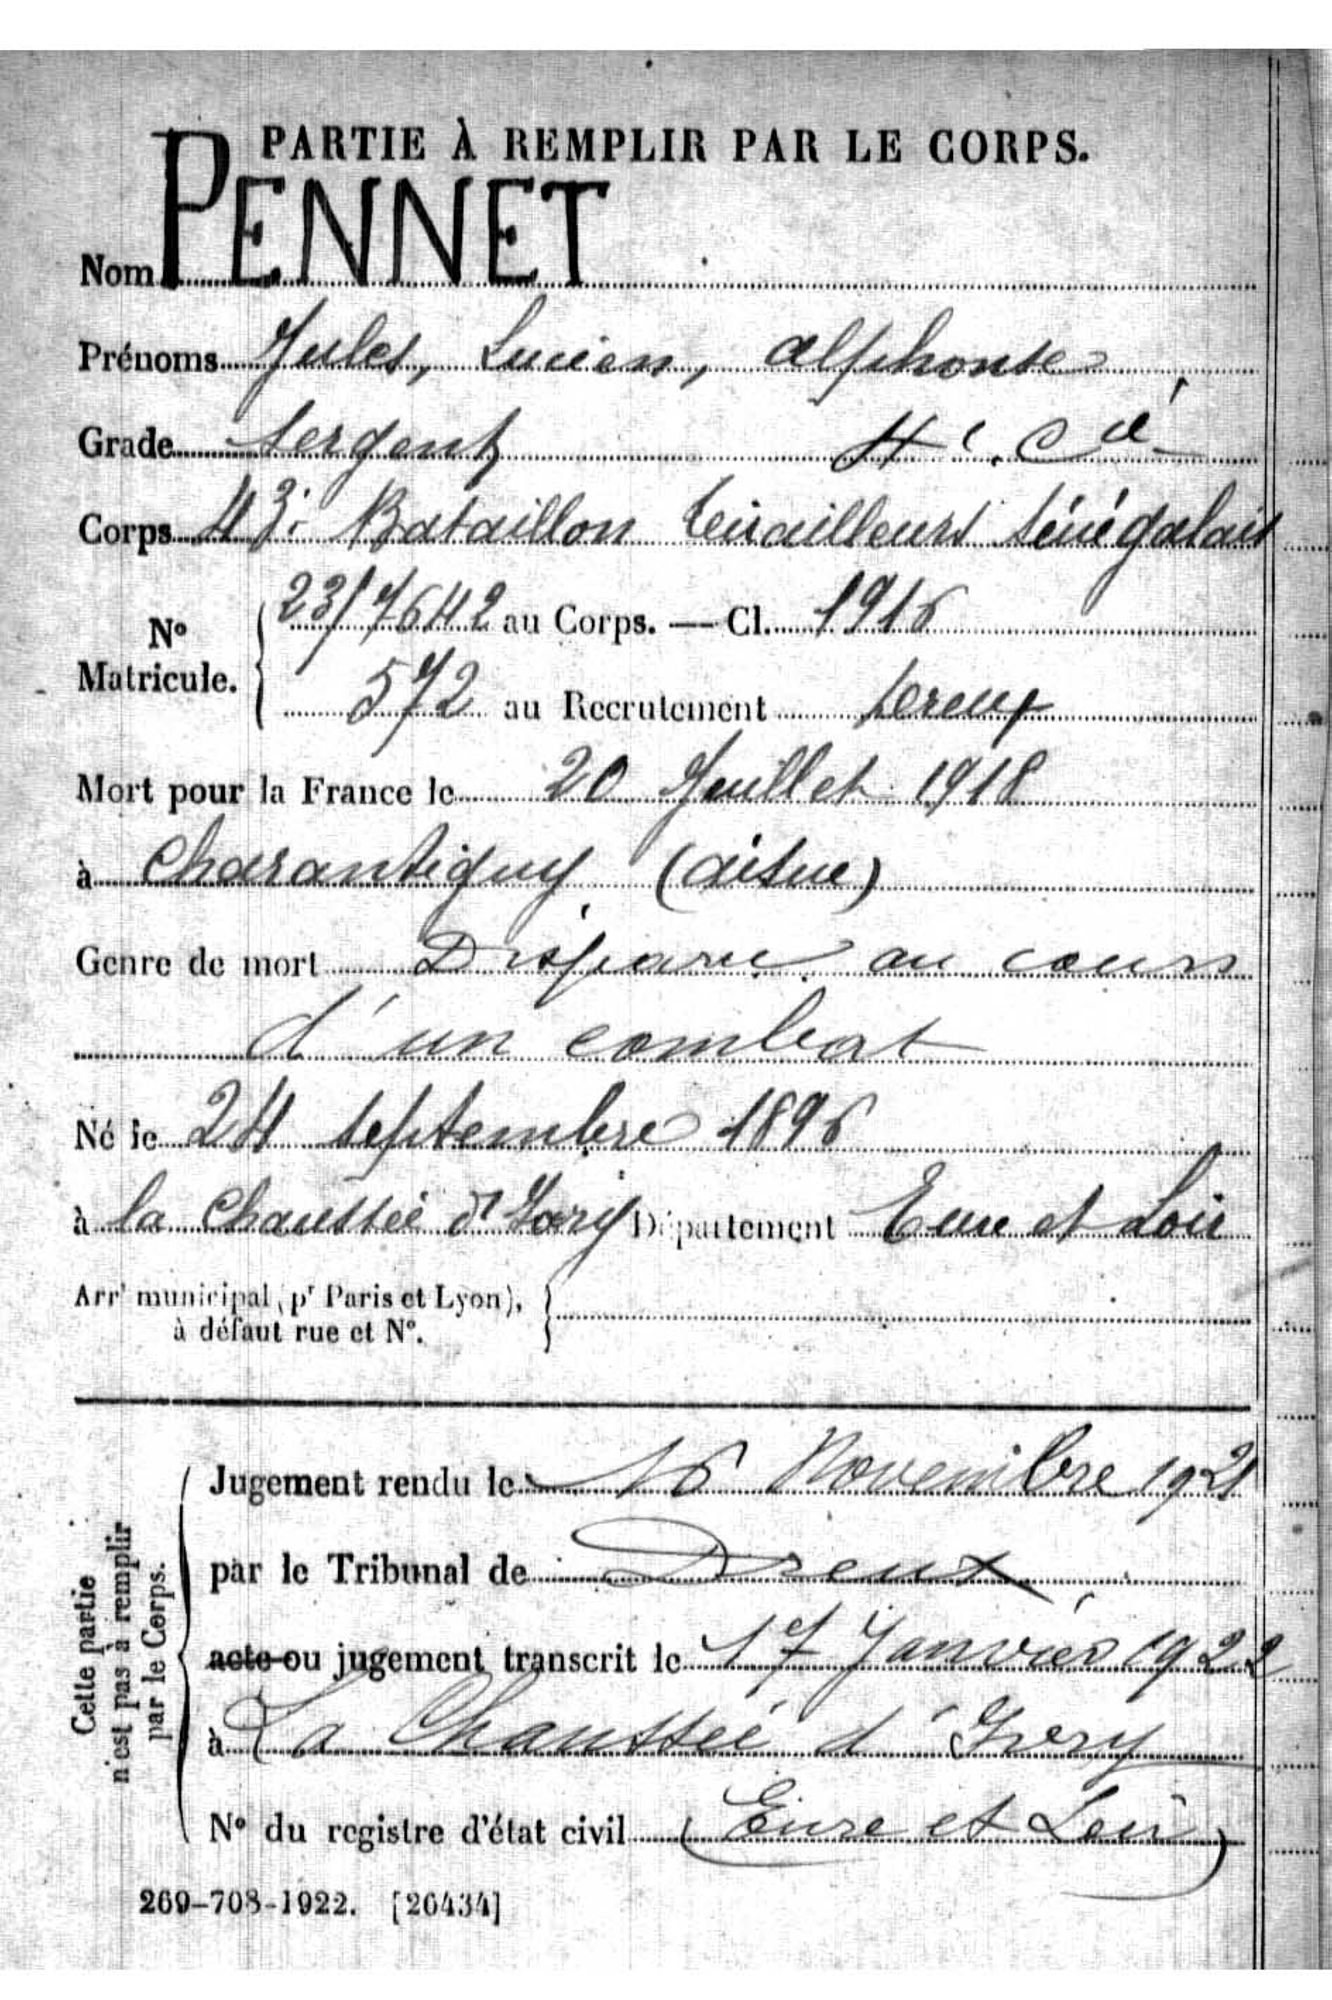 PARTIE À REMPLIR PAR LE CORPS.
Nom PENNET
Prénoms Jules, Lucien, Alphonse
Grade Sergent 4e. Cie
Corps 43e Bataillon tirailleurs sénégalais
N° Matricule.
23/7642 au Corps. — Cl. 1916
572 au Recrutement Dreux
Mort pour la France le 20 Juillet 1918
à Charantigny (Aisne)
Genre de mort Disparu au cours
d'un combat
Né le 24 septembre 1896
à la Chaussée d'Ivry Département Eure et Loir
Arrt municipal (pr Paris et Lyon),
à défaut rue et N°.
Cette partie
n'est pas à remplir
par le Corps.
Jugement rendu le 16 Novembre 1921
par le Tribunal de Dreux
acte ou jugement transcrit le 17 Janvier 1922
à La Chaussée d'Ivry
N° du registre d'état civil (Eure et Loir)
269-708-1922. [26434]